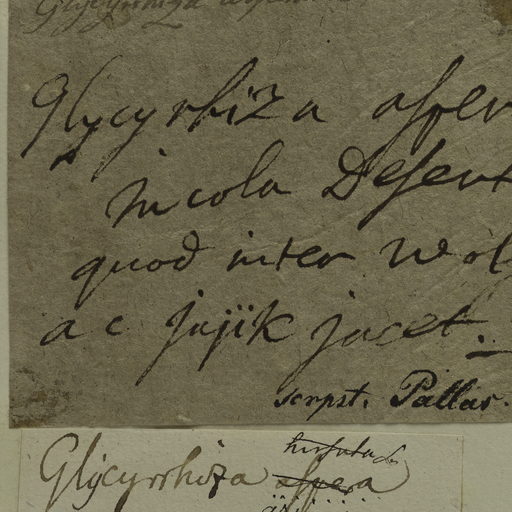 Glycyrrhiza
Glycyrrhiza asper
Incola Desert
quod inter Wol
ac Jajik jacet.
scrpst. Pallas.
hirsuta
Glycyrrhiza aspera